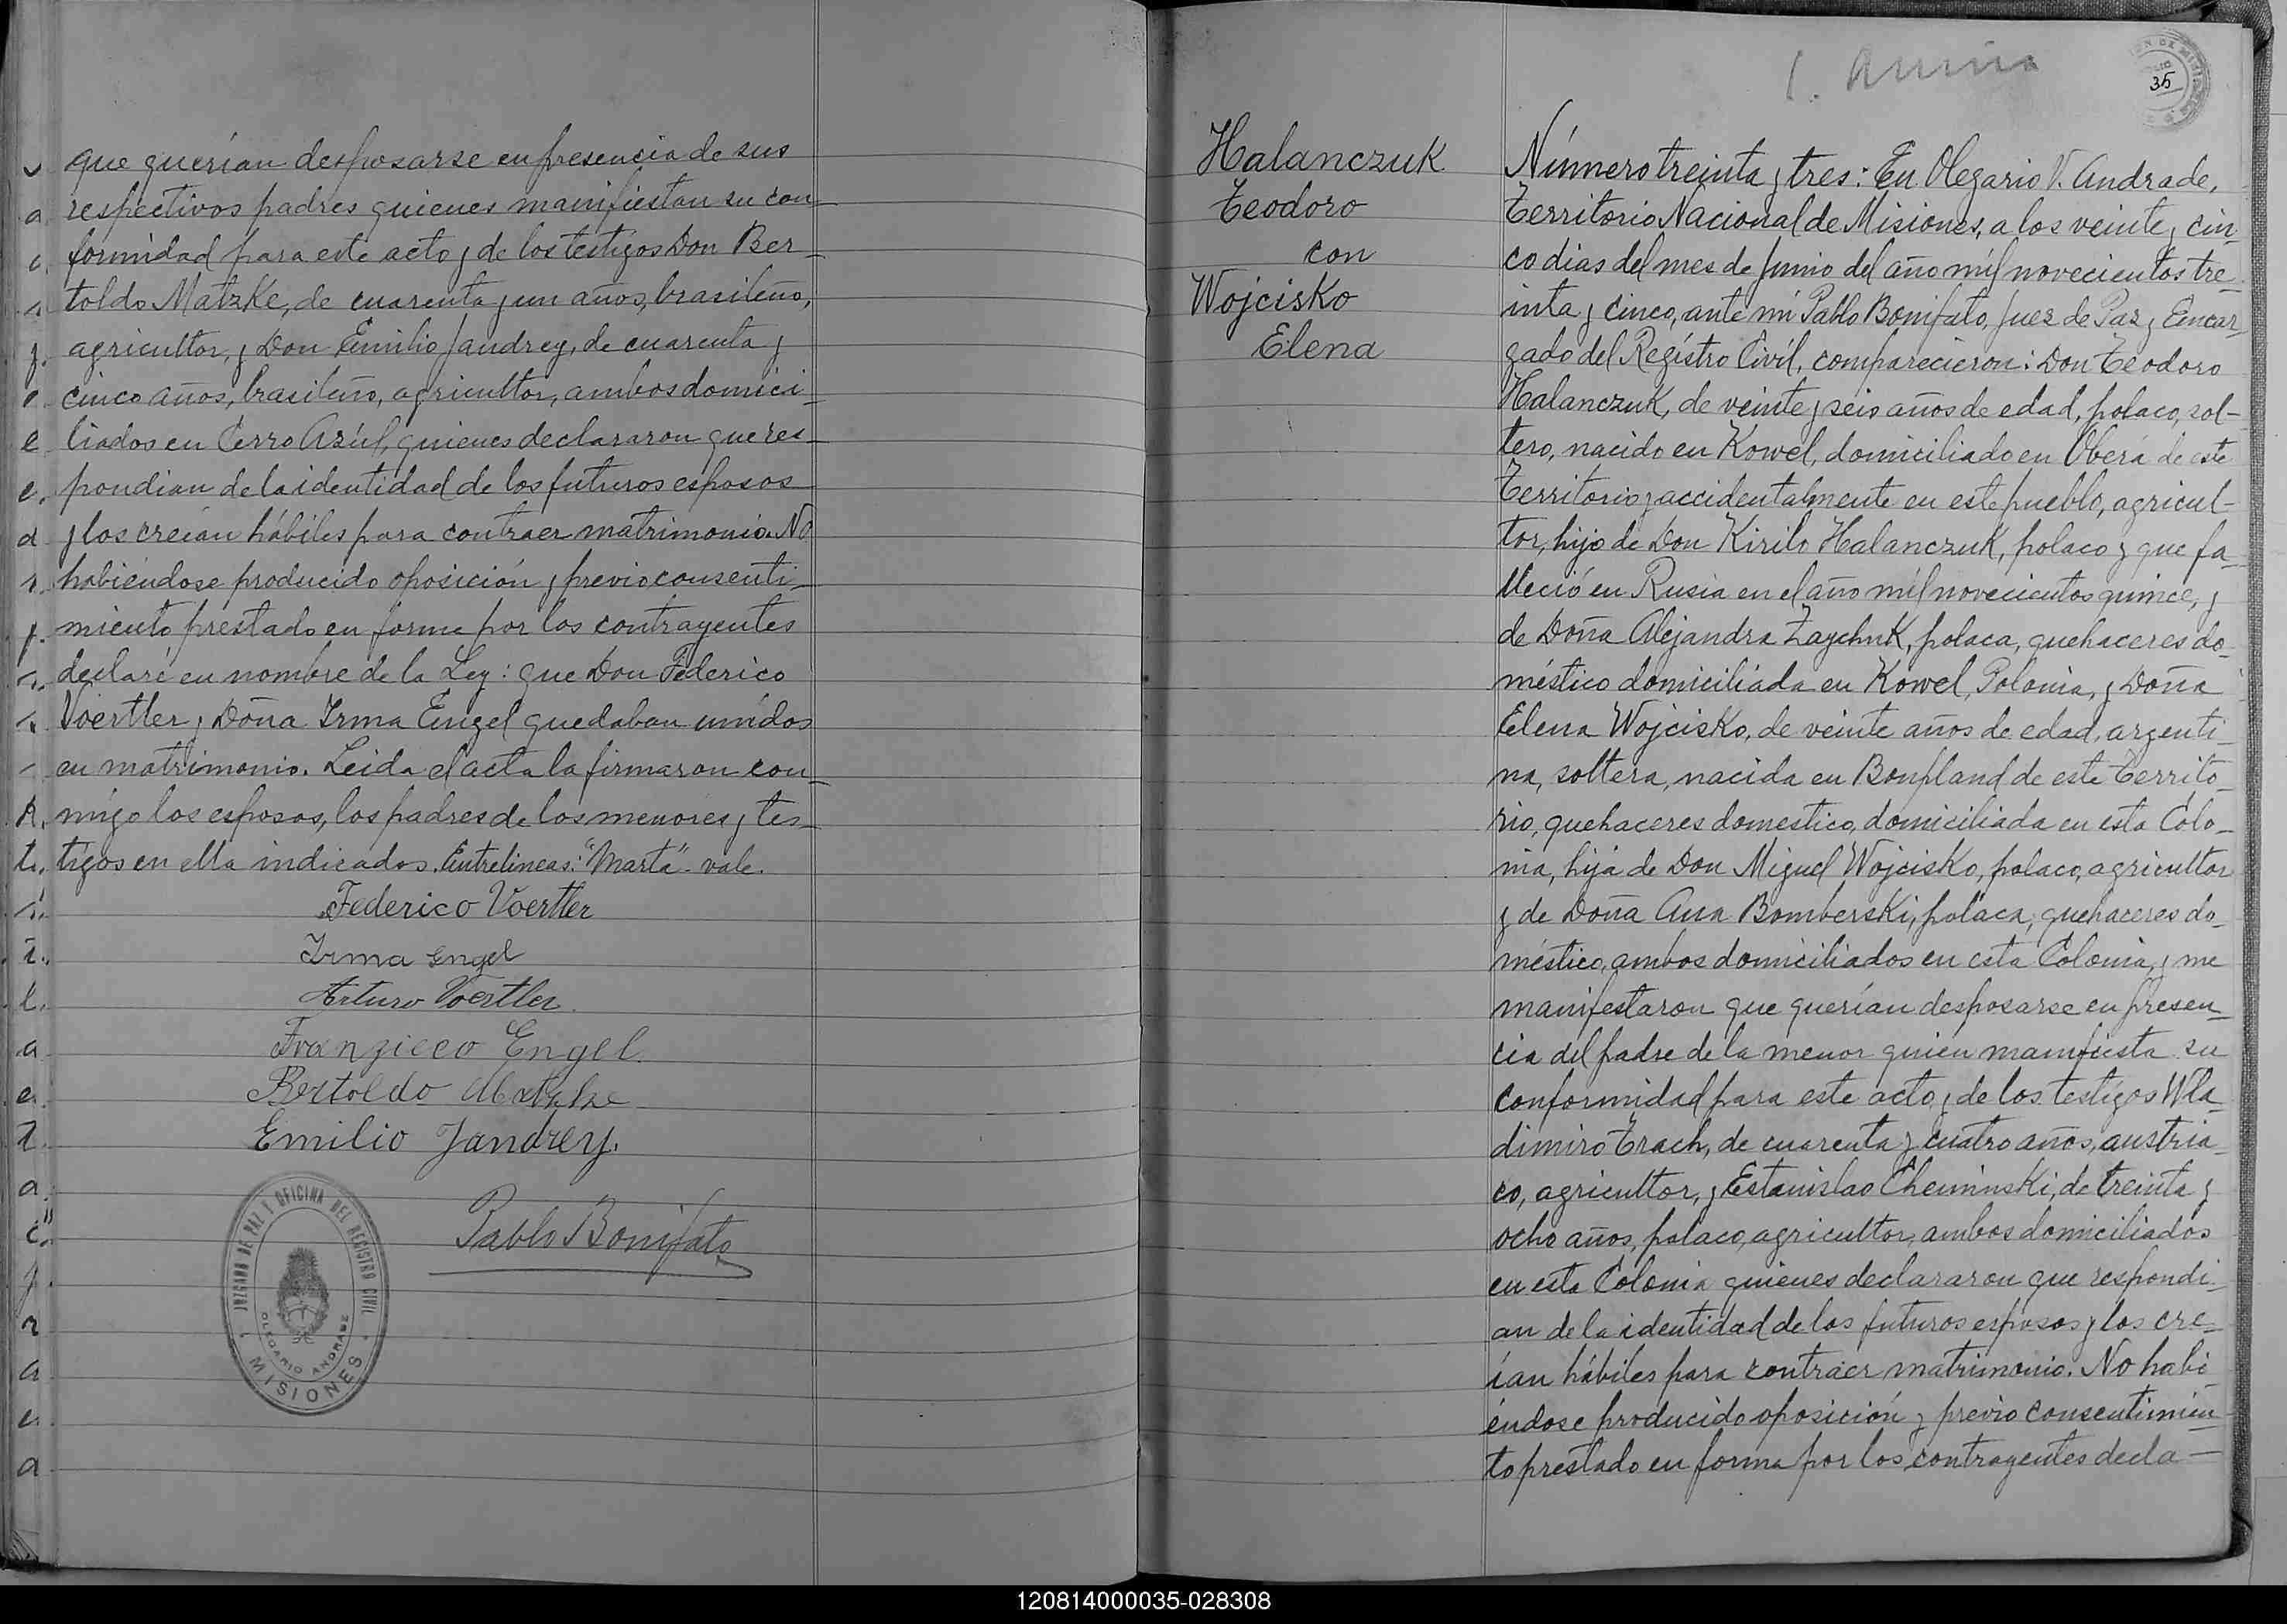 que querían desposarse en presencia de sus
respectivos padres quienes manifiestan su con-
formidad para este acto y de los testigos Don Ber-
toldo Matzke, de cuarenta y un años, brasileño,
agricultor, y Don Emilio Jandrey, de cuarenta y
cinco años, brasileño, agricultor, ambos domici-
liados en Cerro Azúl, quienes declararon que res-
pondian de la identidad de los futuros esposos
y los creían hábiles para contraer matrimonio. No
habiéndose producido oposición y previo consenti-
miento prestado en forma por los contrayentes
declaré en nombre de la Ley: que Don Federico
Voertler y Doña Irma Engel quedaban unídos
en matrimonio. Leida el acta la firmaron con-
mígo los esposos, los padres de los menores y tes-
tígos en ella indicados. Entrelineas: "Marta" - vale.
Federico Voertler
Irma Engel
Arturo Voertler
Franzisco Engel
Bertoldo Matzke
Emilio Jandrey.
Pablo Bonifato
JUZGADO DE PAZ Y OFICINA DEL REGISTRO CIVIL
OLEGARIO ANDRADE
MISIONES
35
Halanczuk
Teodoro
con
Wojcisko
Elena
Número treinta y tres: En Olegario V. Andrade,
Territorio Nacional de Misiones, a los veinte y cin-
co dias del mes de Junio del año míl novecientos tre-
inta y cinco, ante mí Pablo Bonifato, Juez de Paz y Encar-
gado del Regístro Civíl, comparecieron: Don Teodoro
Halanczuk, de veinte y seis años de edad, polaco, sol-
tero, nacido en Kowel, domiciliado en Oberá de este
Territorio y accidentalmente en este pueblo, agricul-
tor, hijo de Don Kirilo Halanczuk, polaco y que fa-
lleció en Rusia en el año míl novecientos quince, y
de Doña Alejandra Zaychuk, polaca, quehaceres do-
méstico domiciliada en Kowel, Polonia, y Doña
Elena Wojcisko, de veinte años de edad, argenti-
na, soltera, nacida en Bonpland de este Territo-
rio, quehaceres domestico, domiciliada en esta Colo-
nia, hija de Don Miguel Wojcisko, polaco, agricultor
y de Doña Ana Bomberski, polaca, quehaceres do-
méstico, ambos domiciliados en esta Colonia, y me
manifestaron que querían desposarse en presen-
cia del padre de la menor quien manifiesta su
conformidad para este acto y de los testígos Wla-
dimiro Trach, de cuarenta y cuatro años, austria-
co, agricultor, y Estanislao Cheminski, de treinta y
ocho años, polaco, agricultor, ambos domiciliados
en esta Colonia quienes declararon que respondi-
an de la identidad de los futuros esposos y los cre-
ían hábiles para contraer matrimonio. No habi-
éndose producido oposición y previo consentimien-
to prestado en forma por los contrayentes decla-
120814000035-028308